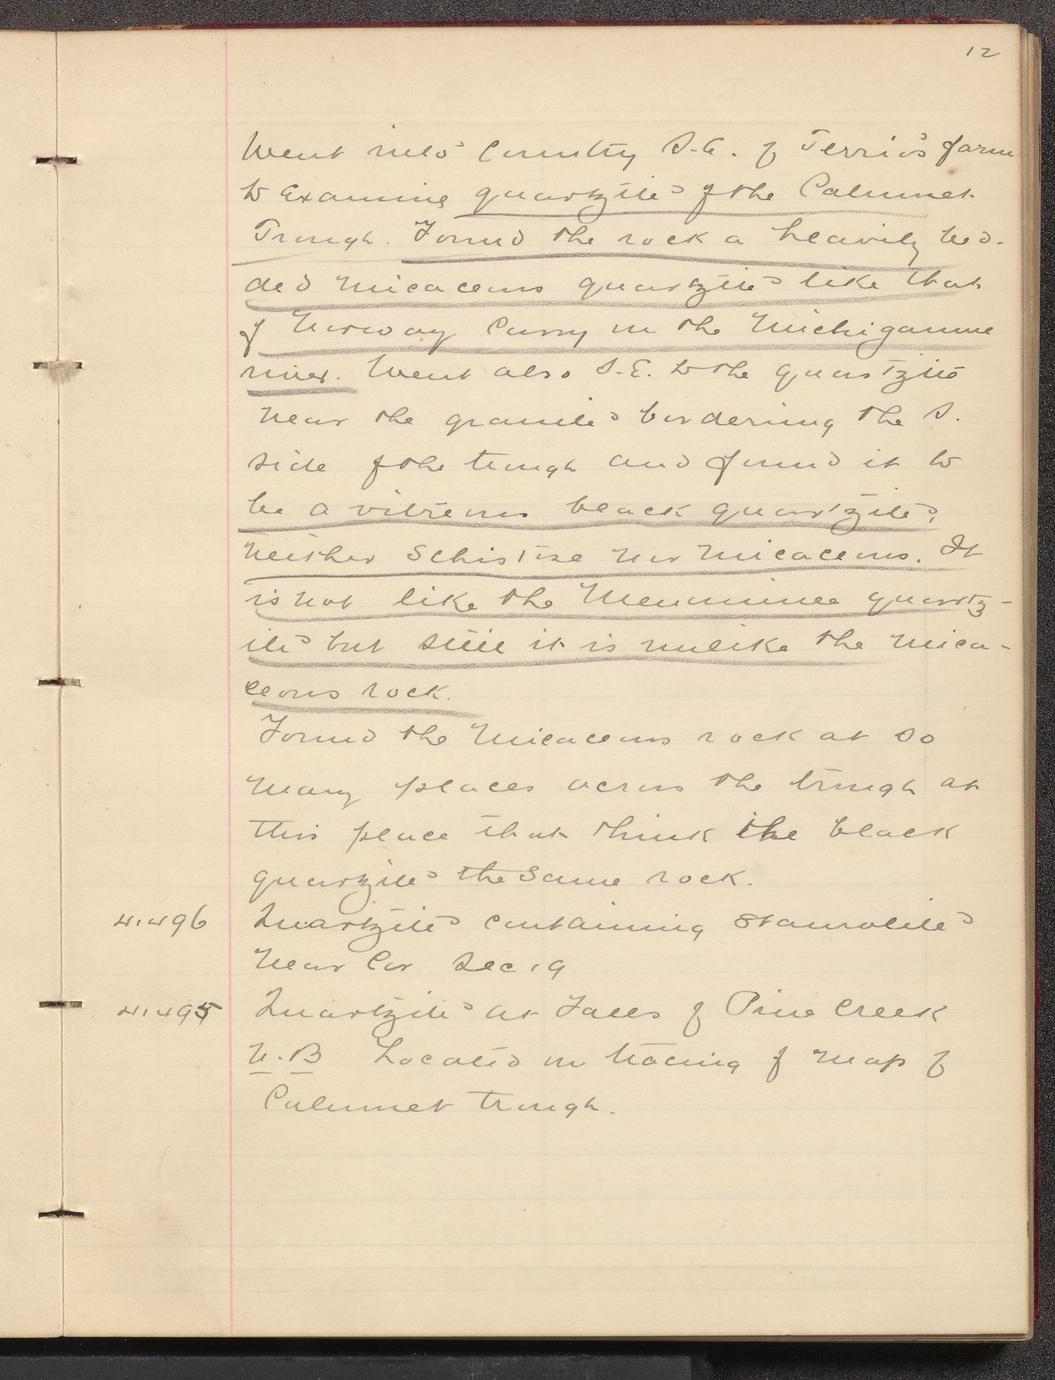 12
Went into Country S.E. of Terrio's farm
to Examine quartzite of the Calumet
Trough. Found the rock a heavily bed-
ded micaceous quartzite like that
of Norway Carry in the Michigamme
river. Went also S.E. to the quartzite
near the granite bordering the S.
side of the trough and found it to
be a vitreous black quartzite,
neither Schistose nor micaceous. It
is not like the Menominee quartz-
ite but still it is unlike the mica-
ceous rock.
Found the micaceous rock at so
many places across the trough at
this place that think the black
quartzite the same rock.
41496 Quartzite containing staurolite
near Cor Sec 19
41495 Quartzite at Falls of Pine Creek
N.B Located on tracing of map of
Calumet trough.